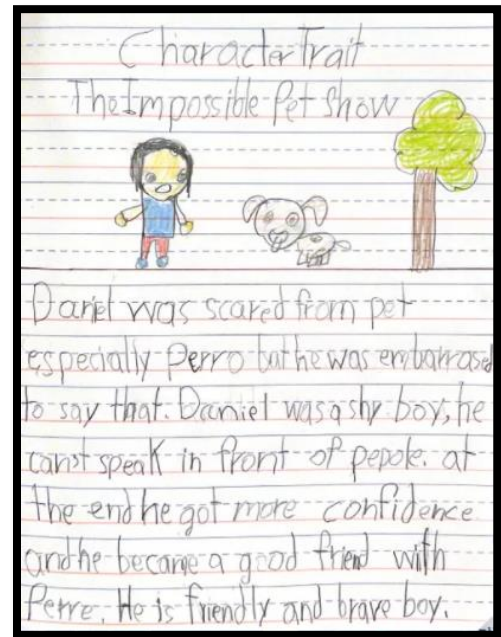 Character Trait
The Impossible Pet Show
Daniel was scared from pet
especially Perro but he was embarrased
to say that. Daniel was a shy boy, he
can't speak in front of pepole. at
the end he got more confidence
and he became a good friend with
Perre. He is friendly and brave boy.